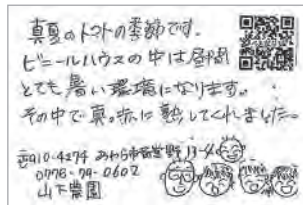 真夏のトマトの季節です。
ビニールハウスの中は昼間
とても暑い環境になります。
その中で真っ赤に熟してくれました。
〒910-4274 あわら市番堂野13-4
0776-79-0602
山下農園